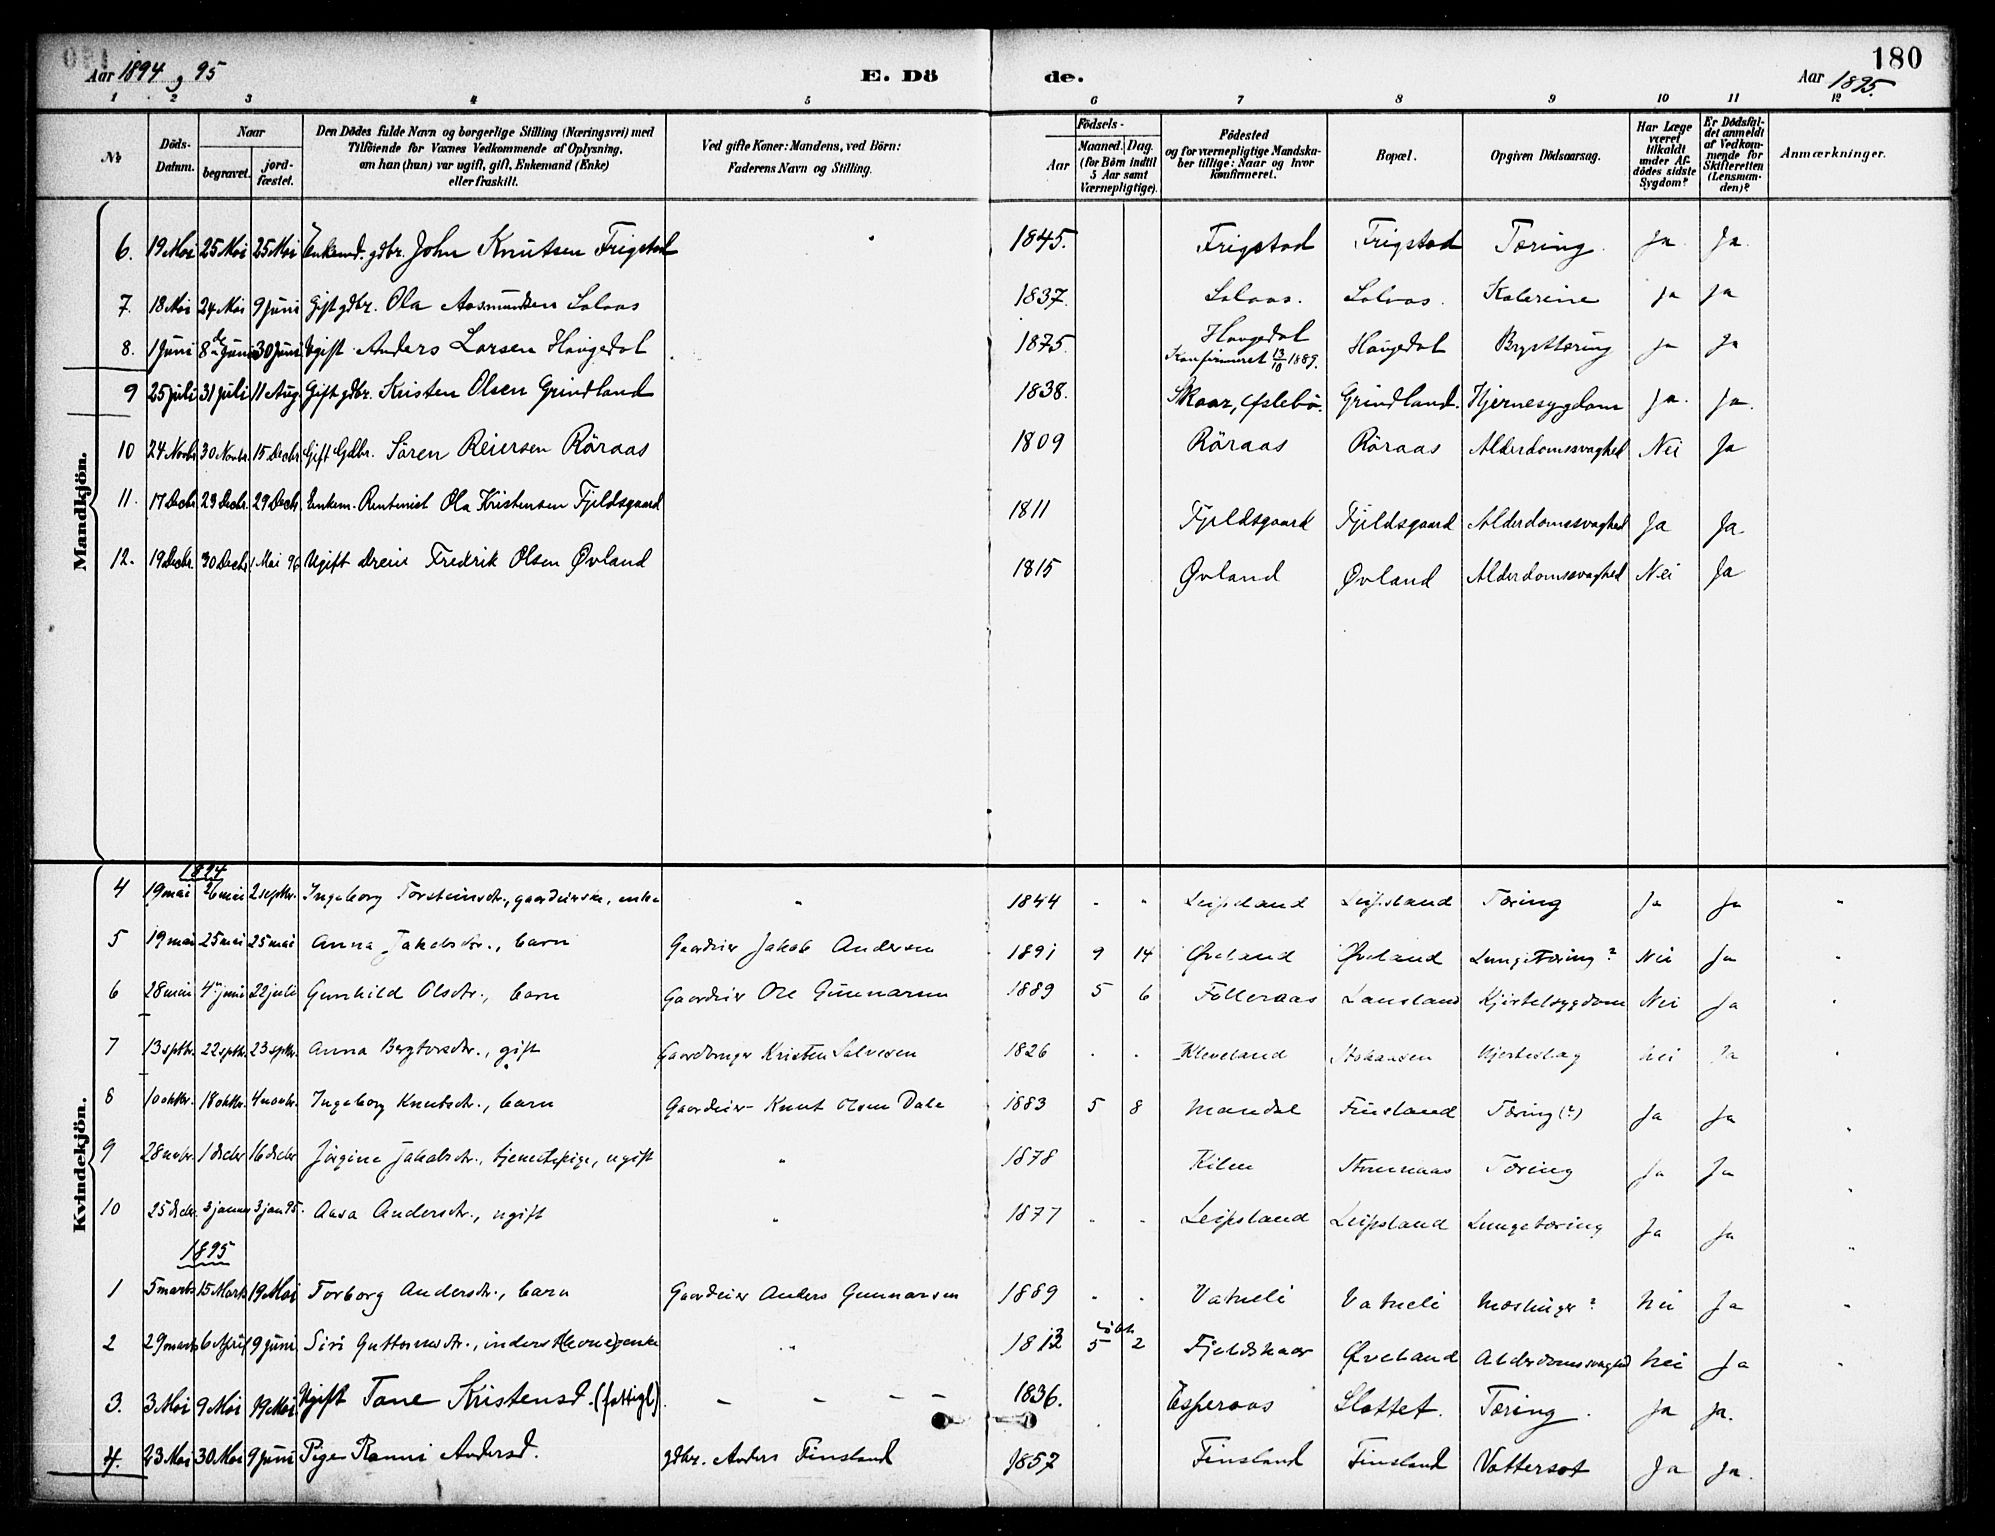 180
Aar 1894 og 95 E. Dö de. Aar 1895.
1 2 3 4 5 6 7 8 9 10 11 12
No
Döds-Datum.
Naar
begravet. jord-fæstet.
Den Dödes fulde Navn og borgerlige Stilling (Næringsvei) med
Tilföiende for Voxnes Vedkommende af Oplysning,
om han (hun) var ugift, gift, Enkemand (Enke)
eller fraskilt.
Ved gifte Koner: Mandens, ved Börn:
Faderens Navn og Stilling.
Födsels-
Aar
Maaned. Dag.
(for Börn indtil
5 Aar samt
Værnepligtige).
Födested
og for værnepligtige Mandska-
ber tillige: Naar og hvor
konfirmeret.
Bopæl.
Opgiven Dödsaarsag.
Har Læge
været
tilkaldt
under Af-
dödes sidste
Sygdom?
Er Dödsfal-
det anmeldt
af Vedkom-
mende for
Skifteretten
(Lensman-
den)?
Anmærkninger.
Mandkjön.
6. 19 Mai 25 Mai 25 Mai Enkemd. gdbr. John Knutsen Frigstad 1845. Frigstad Frigstad Tæring. Ja Ja.
7. 18 Mai 24 Mai 9 Juni Gift gdbr. Ola Aasmundsen Solaas 1837. Solaas. Solaas. Katerine ja ja
8. 1 Juni 8de Juni 30 Juni Ugift Anders Larsen Haugedal 1875. Haugedal Haugedal Brysttæring ja ja
Konfirmeret 13/10 1889.
9 25 juli 31 juli 11 Aug. Gift gdbr. Kristen Olsen Grindland 1838. Skaar, Øslebø. Grindland. Hjernesygdom ja. ja.
10 24 Novbr 30 Novbr. 15 Decbr Gift Gdbr. Sören Reiersen Röraas 1809 Röraas Röraas Alderdomssvaghed Nei Ja
11. 17 Decbr 23 Decbr. 29 Decbr. Enkem. Rentenist Ola Kristensen Fjeldsgaard 1811 Fjeldsgaard Fjeldsgaard Alderdomssvaghed Ja Ja
12. 19 Decbr. 30 Decbr. 1 Mai 96 Ugift Dreie Fredrik Olsen Øvland 1815 Øvland Øvland Alderdomssvaghed Nei Ja
Kvindekjön.
1894
4 19 mai 26 mai 2 septbr. Ingeborg Torsteinsdtr., gaardeierske, enke " 1844 " " Leipsland Leipsland Tæring Ja Ja "
5 19 mai 25 mai 25 mai Anna Jakobsdtr., barn Gaardeier Jakob Andersen 1891 9 14 Øveland Øveland Lungetæring? Nei Ja "
6 28 mai 4de juni 22 juli Gunhild Olsdtr., barn Gaardeier Ole Gunnarsen 1889 5 6 Folleraas Lausland Kjertelsygdom Nei Ja "
7 13 septbr. 22 septbr. 23 septbr. Anna Bergtorsdtr., gift Kristen Salvesen 1826 " " Kleveland Hjerteslag Nei Ja "
8 10 oktbr. 18 oktbr. 4 novbr. Ingeborg Knutsdtr., barn Gaardeier Knut Olsen Dale 1883 5 8 Mandal Finsland Tæring (?) Ja Ja "
9 28 novbr. 1 decbr 16 decbr Jörgine Jakobsdtr., tjenestepige, ugift " 1878 Kilen Tæring Ja Ja "
10 25 decbr. 3 januar 3 jan 95. Aasa Andersdtr., ugift " 1877 " " Leipsland Leipsland Lungetæring Ja Ja "
1895
1 5 marts 15 Marts 19 Mai Torborg Andersdtr., barn Gaardeier Anders Gunnarsen 1889 " " Vatneli Vatneli Mæslinger? Nei Ja "
2 29 marts 6 April 9 juni Siri Guttormsdtr., enke " 1812 5 2 Fjeldskaar Øveland Alderdomssvaghed Nei Ja "
3. 3 Mai 9 Mai 19 Mai. Ugift Tane Kristensd. (fattigl). – – – – 1836. Esperaas Slottet. Tæring. ja ja.
4. 23 Mai 30 Mai 9 juni Pige Ranni Andersd. gdbr. Anders Finsland 1857 Finsland Finsland Vattersot Ja ja.